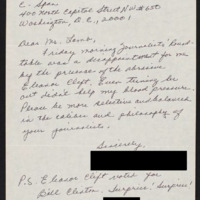 C-Span
400 North Capitol Street NW #650
Washington, D.C., 20001
Dear Mr. Lamb,
Friday morning Journalists' Round-
table was a disappointment for me
by the presence of the abrasive
Eleanor Clift. Even tuning her
out didn't help my blood pressure.
Please be more selective and balanced
in the calibre and philosophy of
your journalists.
Sincerely,
P.S. Eleanor Clift voted for
Bill Clinton. Surprise! Surprise!